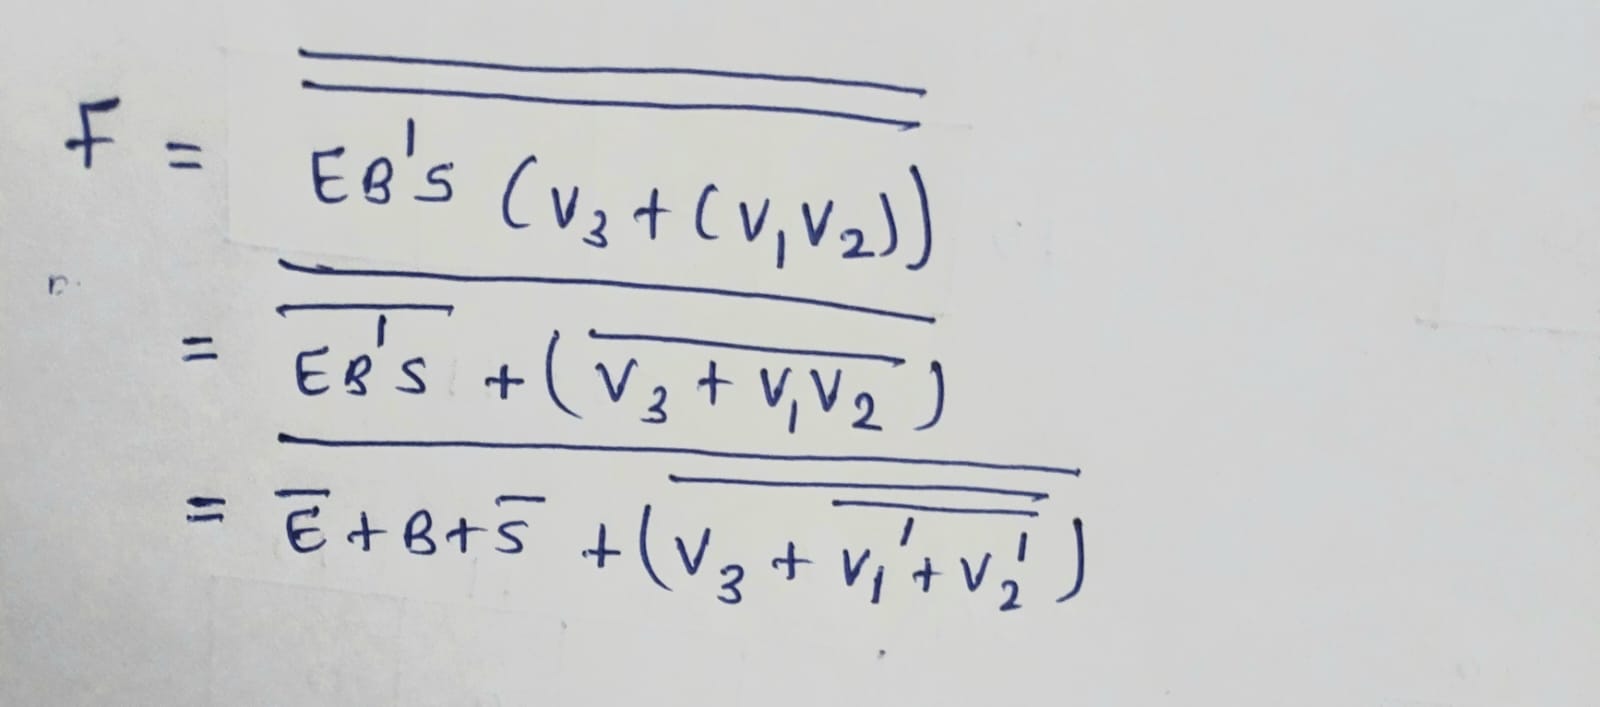 F = \overline{\overline{EB'S (V_3 + (V_1 V_2))}}
= \overline{\overline{EB'S} + (\overline{V_3 + V_1 V_2})}
= \overline{\overline{E} + B + \overline{S} + (\overline{V_3 + \overline{V_1' + V_2'}})}